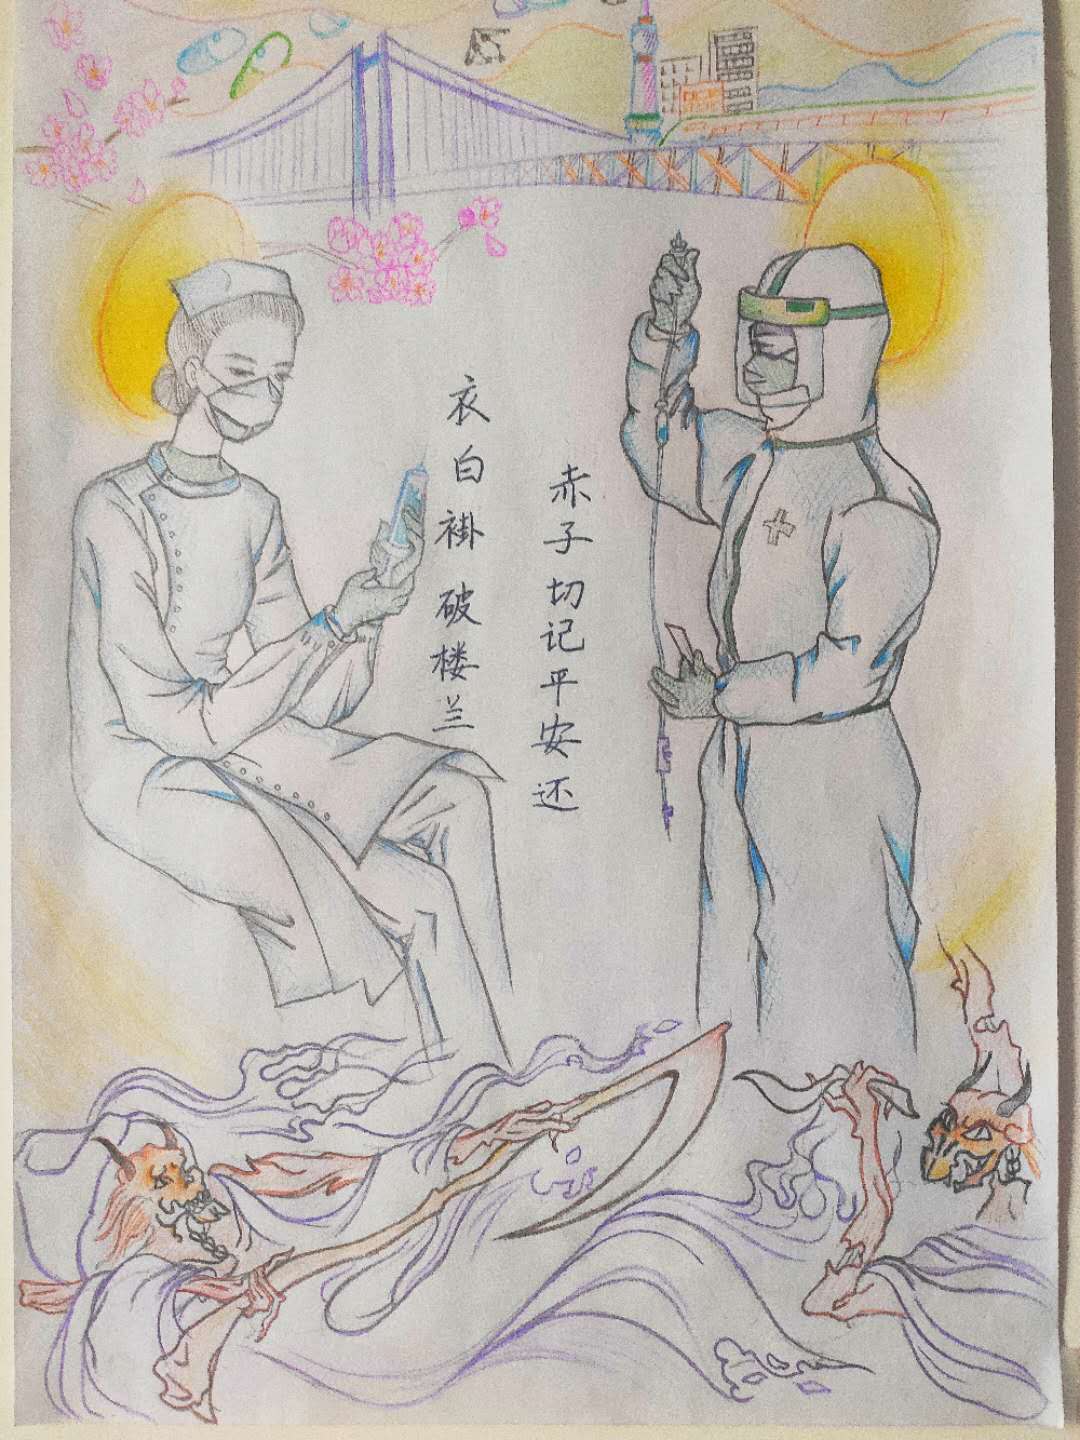 衣白褂破楼兰
赤子切记平安还